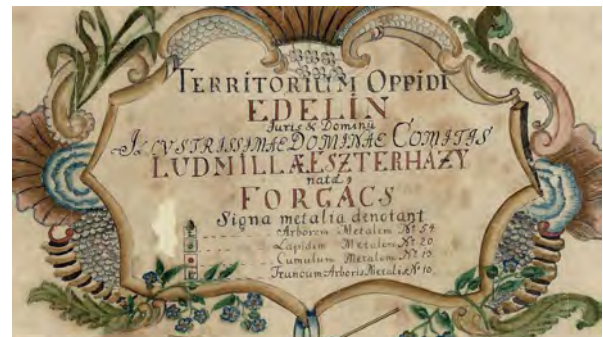 TERRITORIUM OPPIDI
EDELÍN
Juris & Dominii
ILLVSTRISSIMAE DOMINAE COMITIS
LUDMILLÆ ESZTERHAZY
natæ
FORGÁCS
Signa metalia denotant
Arborem Metalem Nº 54
Lapidem Metalem Nº 20
Cumulum Metalem Nº 13
Truncum Arboris Metaliæ Nº 10